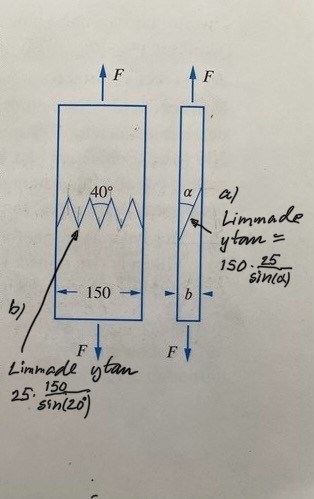 F
F
40°
α
a)
Limmade
ytan =
150 · 25/sin(α)
150
b
b)
F
F
Limmade ytan
25 · 150/sin(20°)